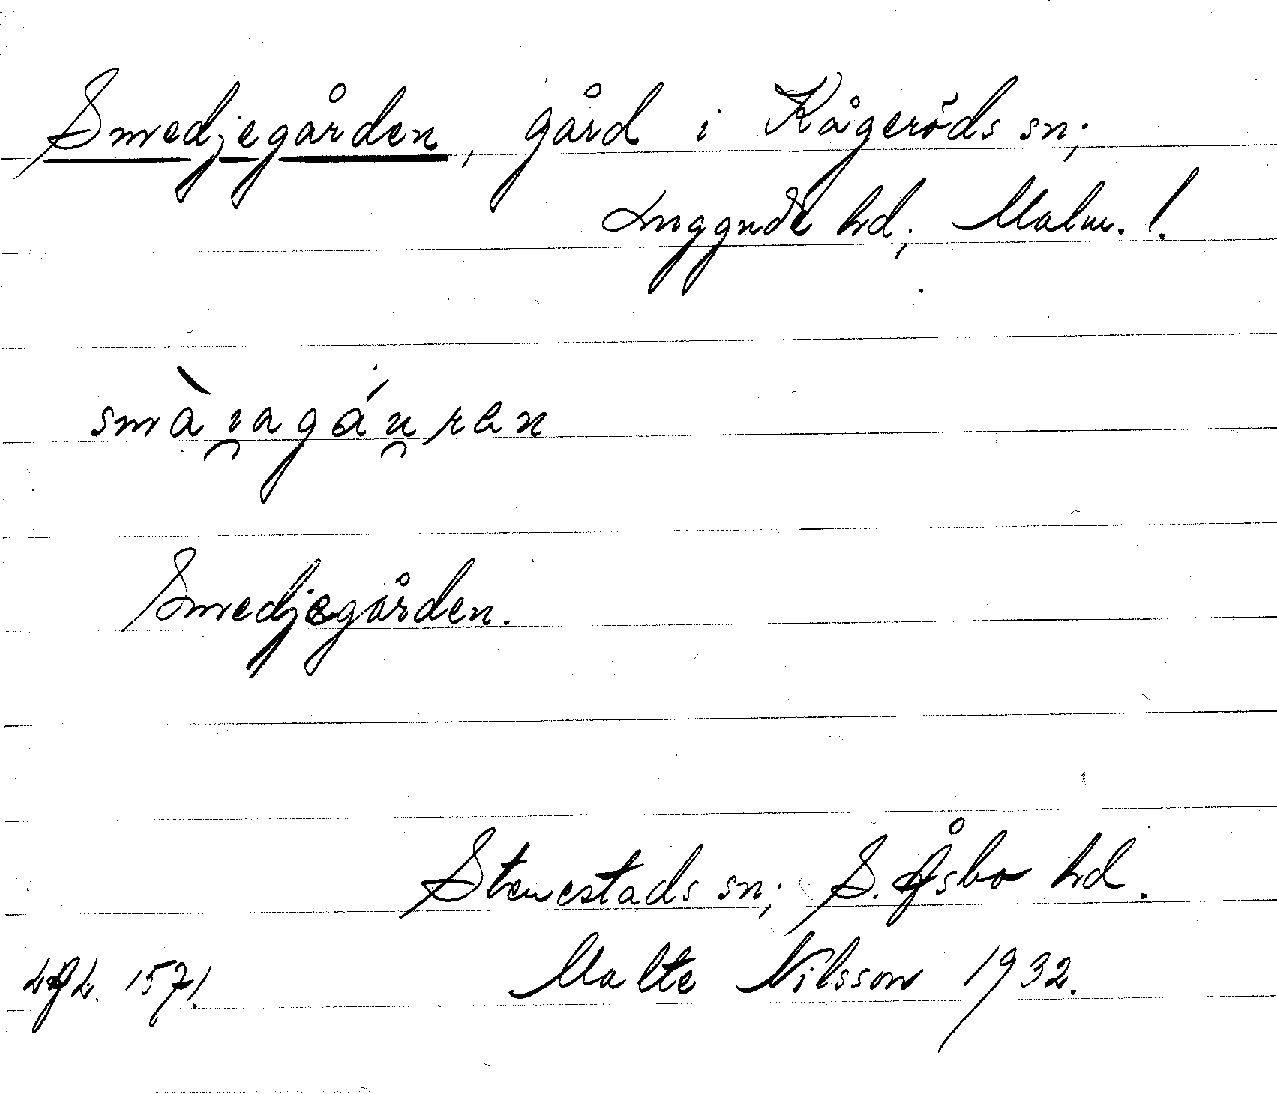 Smedjegården, gård i Kågeröds sn;
Luggude hd; Malm. l.
smàɩ̯agáu̯ran
Smedjegården.
Stenestads sn; S. Åsbo hd.
Malte Nilsson 1932.
1571.